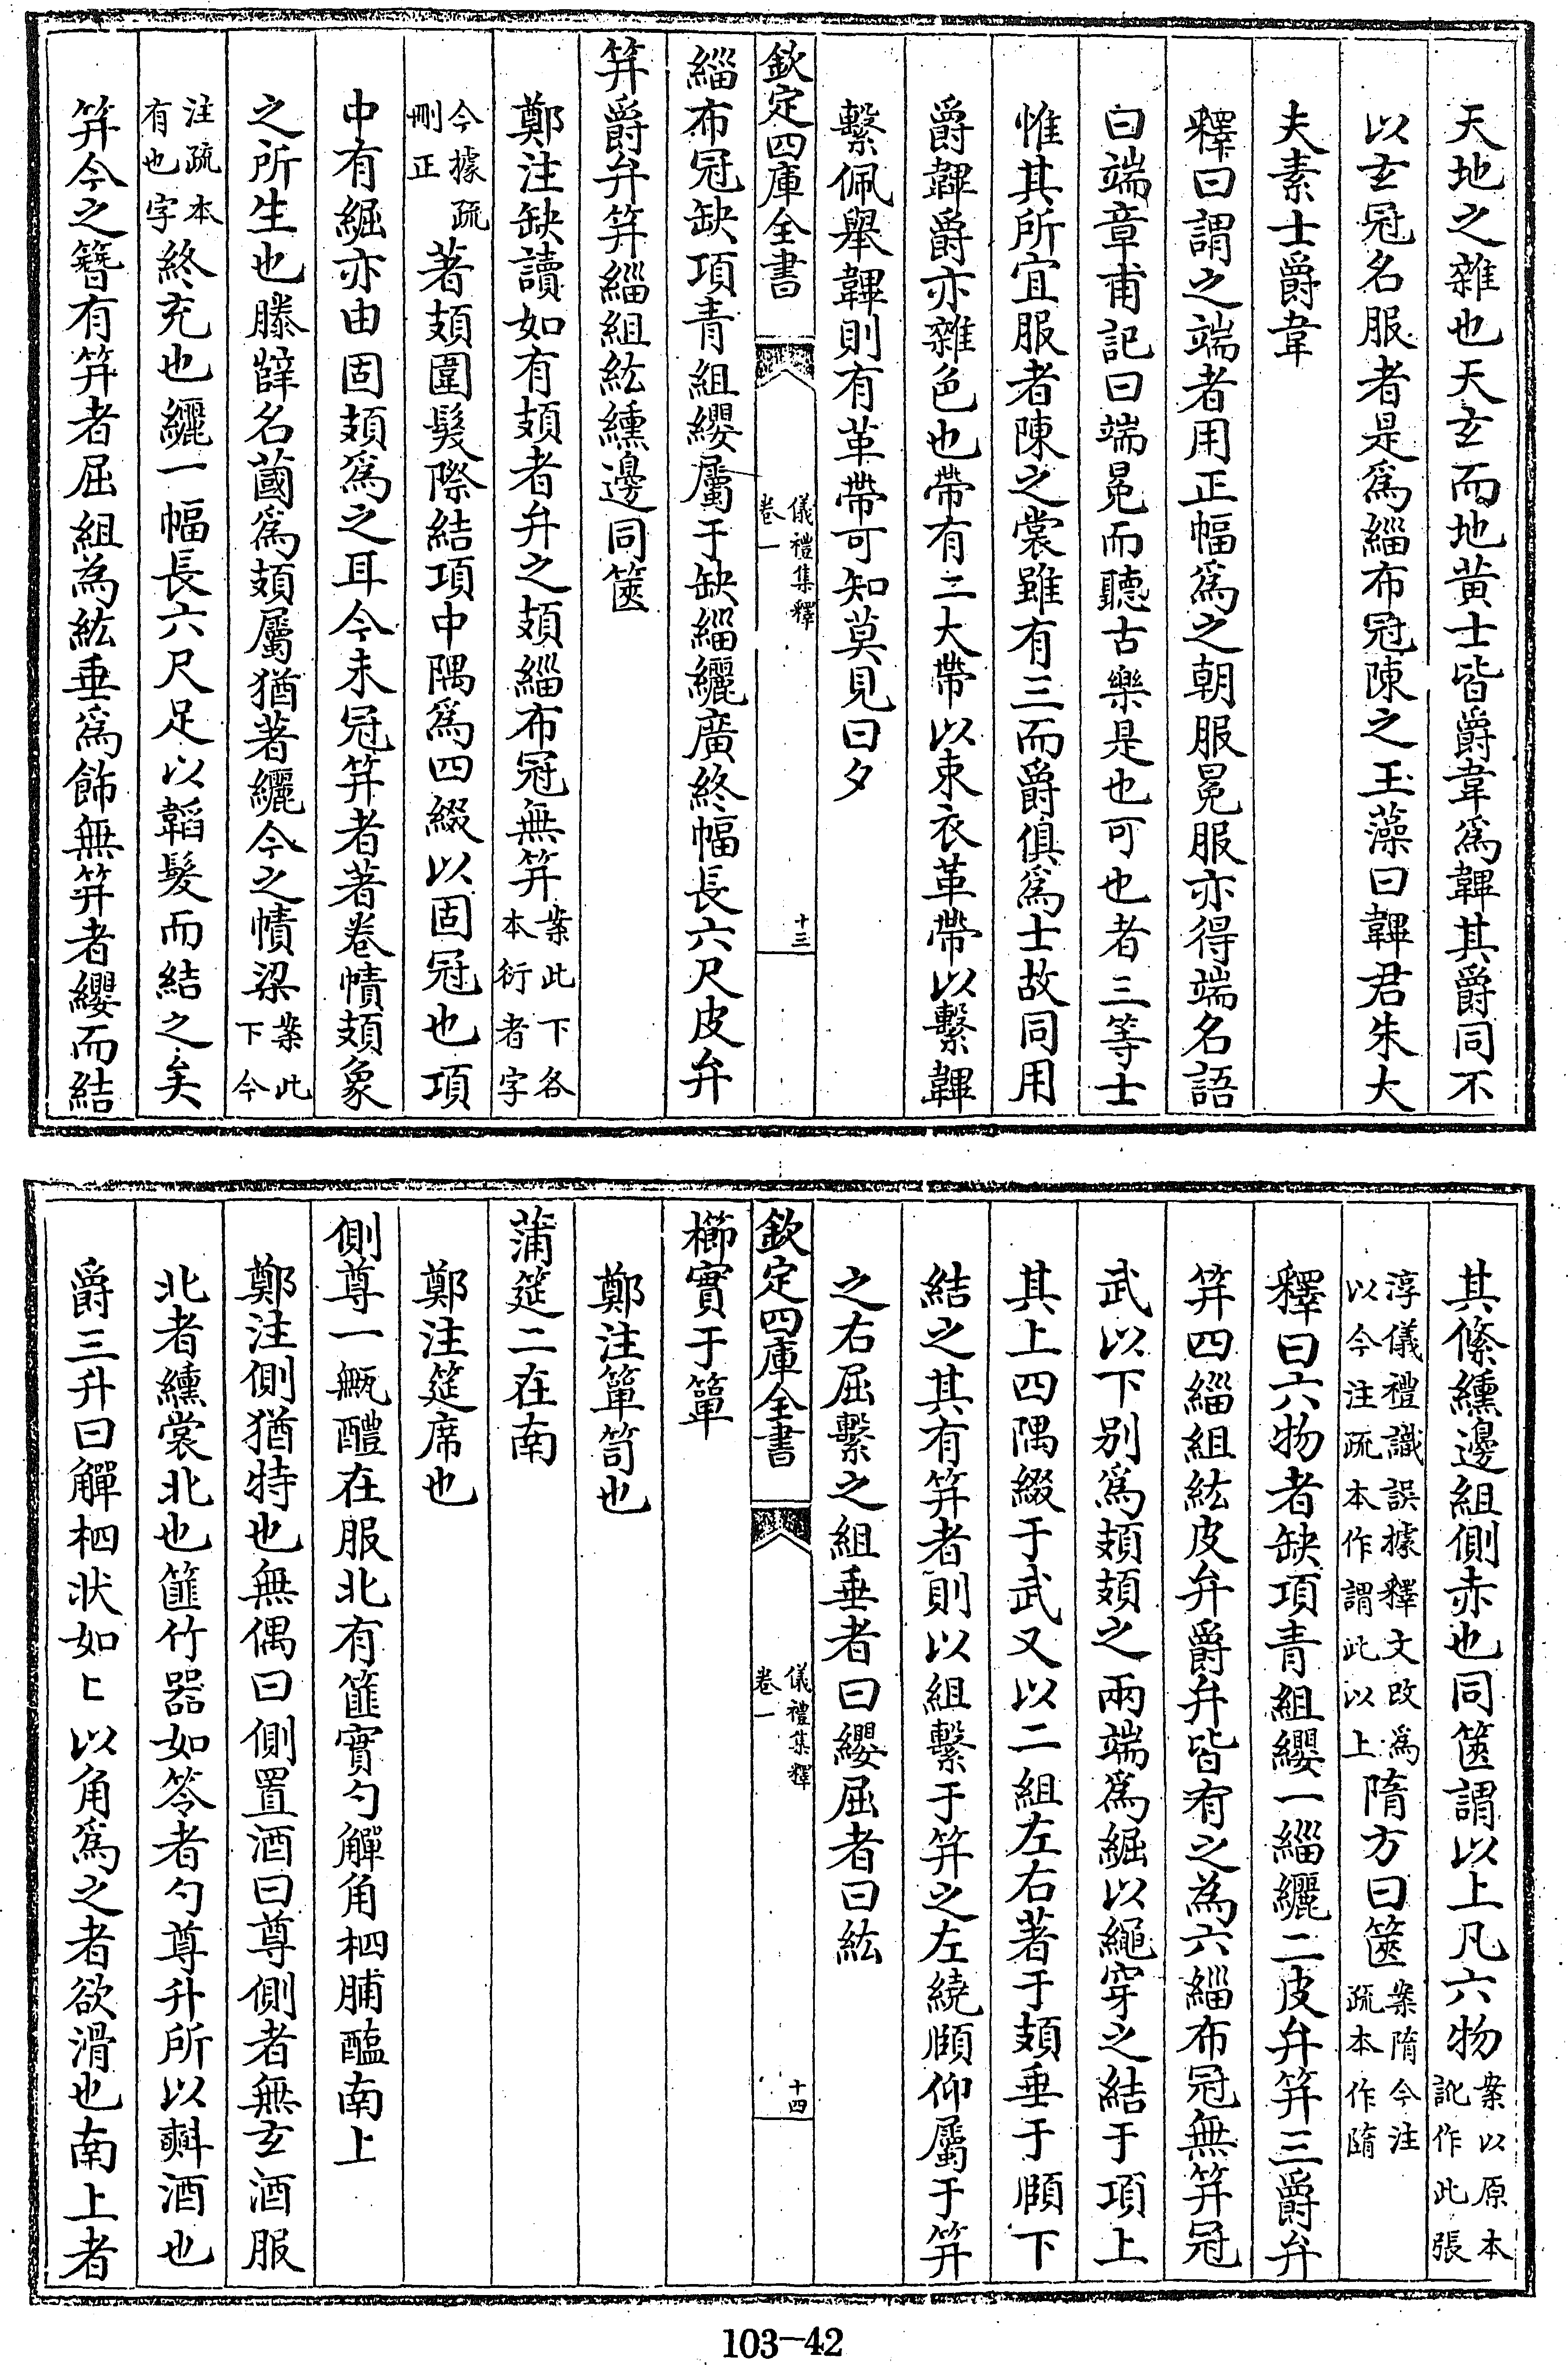 天地之雜也天玄而地黃士皆爵韋爲韠其爵同不
以玄冠名服者是爲緇布冠陳之玉藻曰韠君朱大
夫素士爵韋
釋曰謂之端者用正幅爲之朝服冕服亦得端名語
曰端章甫記曰端冕而聽古樂是也可也者三等士
惟其所宜服者陳之裳雖有三而爵俱爲士故同用
爵韠爵亦雜色也帶有二大帶以束衣革帶以繫韠
繫佩舉韠則有革帶可知莫見曰夕
欽定四庫全書 儀禮集釋 卷一 十三
緇布冠缺項青組纓屬于缺緇纚廣終幅長六尺皮弁
笄爵弁笄緇組紘纁邊同篋
鄭注缺讀如有頍者弁之頍緇布冠無笄案此下各本衍者字
今據疏刪正著頍圍髮際結項中隅爲四綴以固冠也項
中有䋿亦由固頍爲之耳今未冠笄者著卷幘頍象
之所生也滕薛名蔮爲頍屬猶著纚今之幘梁案此下今
注疏本有也字終充也纚一幅長六尺足以韜髮而結之矣
笄今之簪有笄者屈組為紘垂爲飾無笄者纓而結
其絛纁邊組側赤也同篋謂以上凡六物案以原本訛作此張
淳儀禮識誤據釋文改爲以今注疏本作謂此以上隋方曰篋案隋今注疏本作隨
釋曰六物者缺項青組纓一緇纚二皮弁笄三爵弁
笄四緇組紘皮弁爵弁皆有之為六緇布冠無笄冠
武以下别爲頍頍之兩端爲䋿以繩穿之結于項上
其上四隅綴于武又以二組左右著于頍垂于頤下
結之其有笄者則以組繫于笄之左繞頤仰屬于笄
之右屈繫之組垂者曰纓屈者曰紘
欽定四庫全書 儀禮集釋 卷一 十四
櫛實于簞
鄭注簞笥也
蒲筵二在南
鄭注筵席也
側尊一甒醴在服北有篚實勺觶角柶脯醢南上
鄭注側猶特也無偶曰側置酒曰尊側者無玄酒服
北者纁裳北也篚竹器如笭者勺尊升所以㪺酒也
爵三升曰觶柶狀如匕以角爲之者欲滑也南上者
103-42